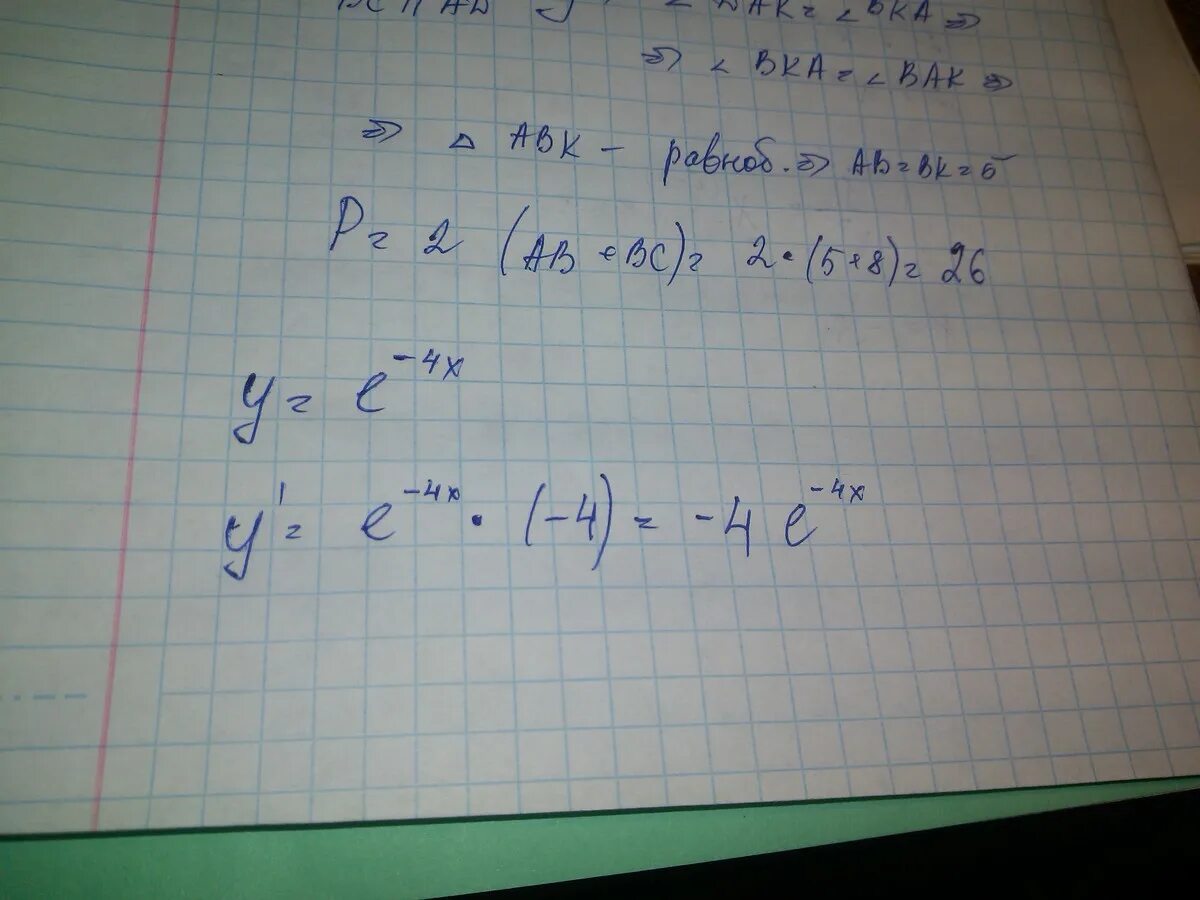 BC || AD ∠ DAK = ∠ BKA ⇒
⇒ ∠ BKA = ∠ BAK ⇒
⇒ △ ABK - равноб. ⇒ AB = BK = 5
P = 2 (AB + BC) = 2 · (5+8) = 26
y = e^{-4x}
y' = e^{-4x} · (-4) = -4 e^{-4x}